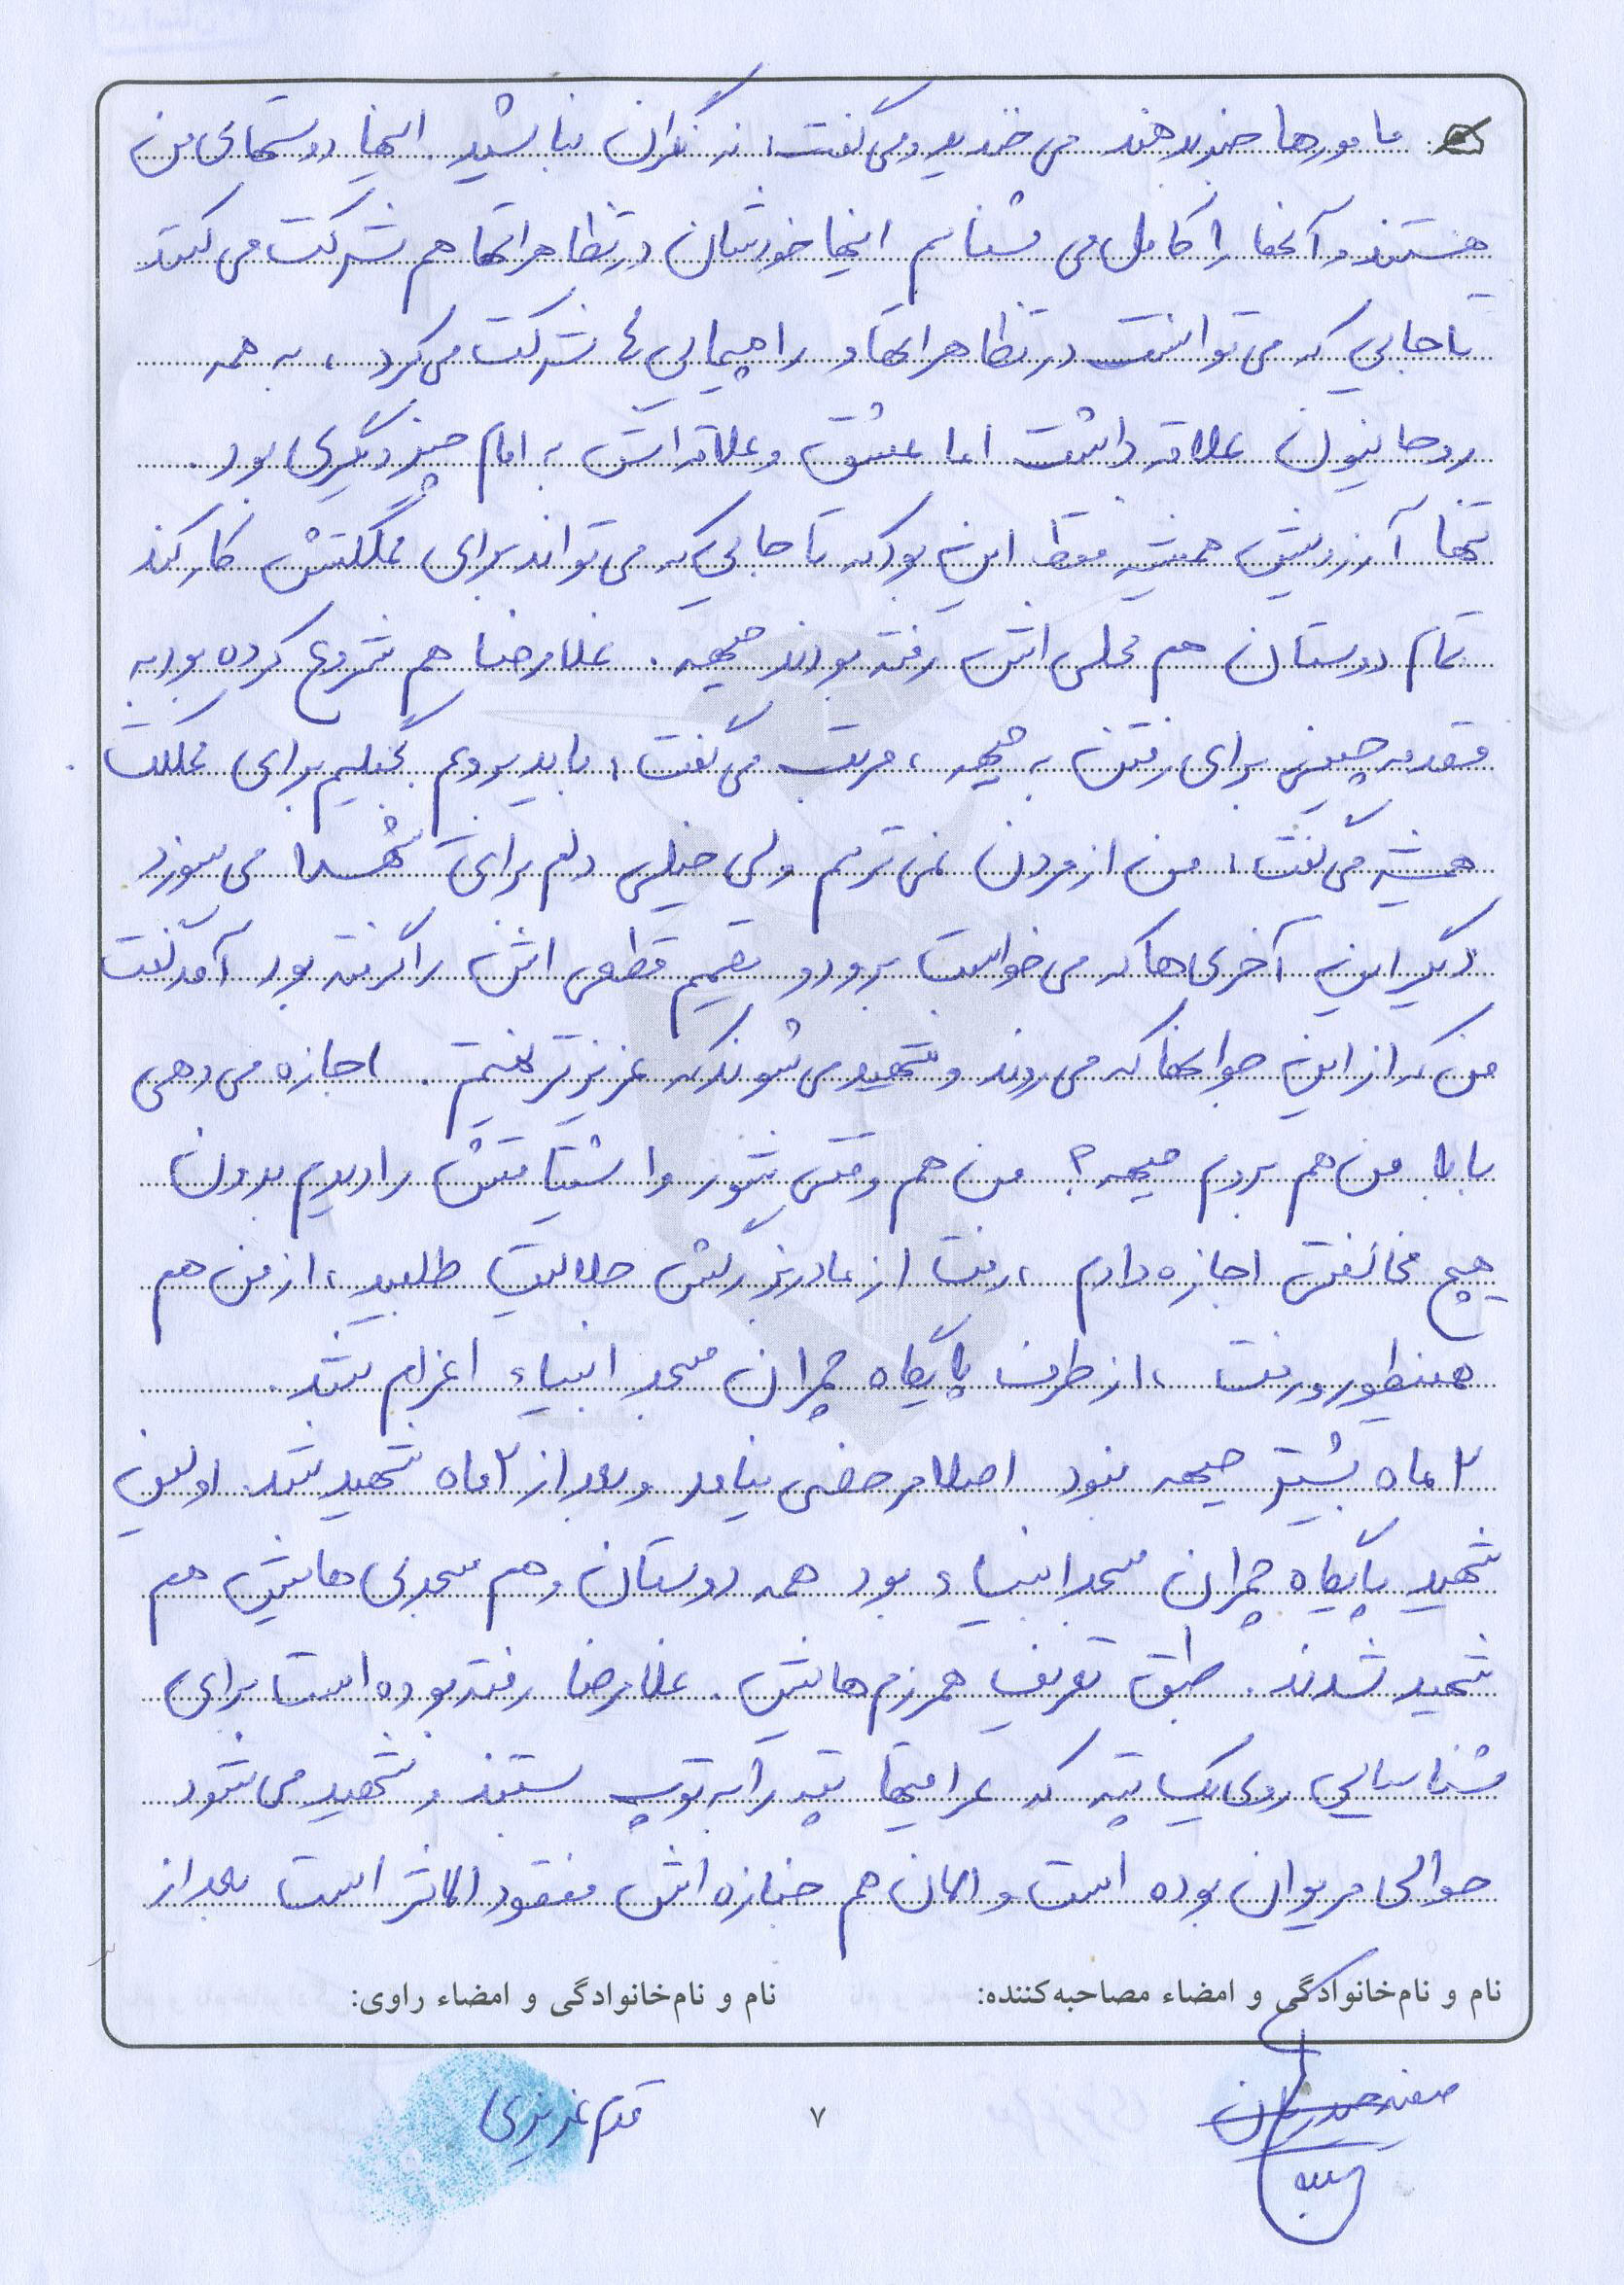 مامورها خبر بدهند می خندید و می گفت: نه نگران نباشید. اینها دوستهای من
هستند و آنها را کامل می شناسم اینها خودشان در تظاهراتها هم شرکت می کنند
تا جایی که می توانست در تظاهراتها و راهپیمایی ها شرکت می کرد، به همه
روحانیون علاقه داشت اما عشق و علاقه اش به امام چیز دیگری بود.
تنها آرزویش همیشه فقط این بود که تا جایی که می تواند برای مملکتش کار کند
تمام دوستان هم محلی اش رفته بودند جبهه. غلامرضا هم شروع کرده بود به
مقدمه چینی برای رفتن به جبهه، مرتب می گفت: باید برویم بجنگیم برای مملکت.
همیشه می گفت: من از مردن نمی ترسم ولی خیلی دلم برای شهدا می سوزد
دیگر این آخری ها که می خواست برود و تصمیم قطعی اش را گرفته بود آمد گفت
من که از این جوانها که می روند و شهید می شوند که عزیزتر نیستم. اجازه می دهی
بابا من هم بروم جبهه؟ من هم وقتی شور و اشتیاقش را دیدم بدون
هیچ مخالفتی اجازه دادم، رفت از مادربزرگش حلالیت طلبید، از من هم
همینطور و رفت، از طرف پایگاه چمران مسجد انبیاء اعزام شد.
۲ ماه بیشتر جبهه نبود اصلا مرخصی نیامد و بعد از ۲ ماه شهید شد. اولین
شهید پایگاه چمران مسجد انبیاء بود همه دوستان و هم مسجدی هایش هم
شهید شدند. طبق تعریف همرزم هایش. غلامرضا رفته بوده است برای
شناسایی روی یک تپه که عراقیها تپه را به توپ بستند و شهید می شود
حوالی مریوان بوده است و الان هم جنازه اش مفقود الاثر است بعد از
نام و نام‌خانوادگی و امضاء مصاحبه‌کننده:
نام و نام‌خانوادگی و امضاء راوی:
عزیزی
۷